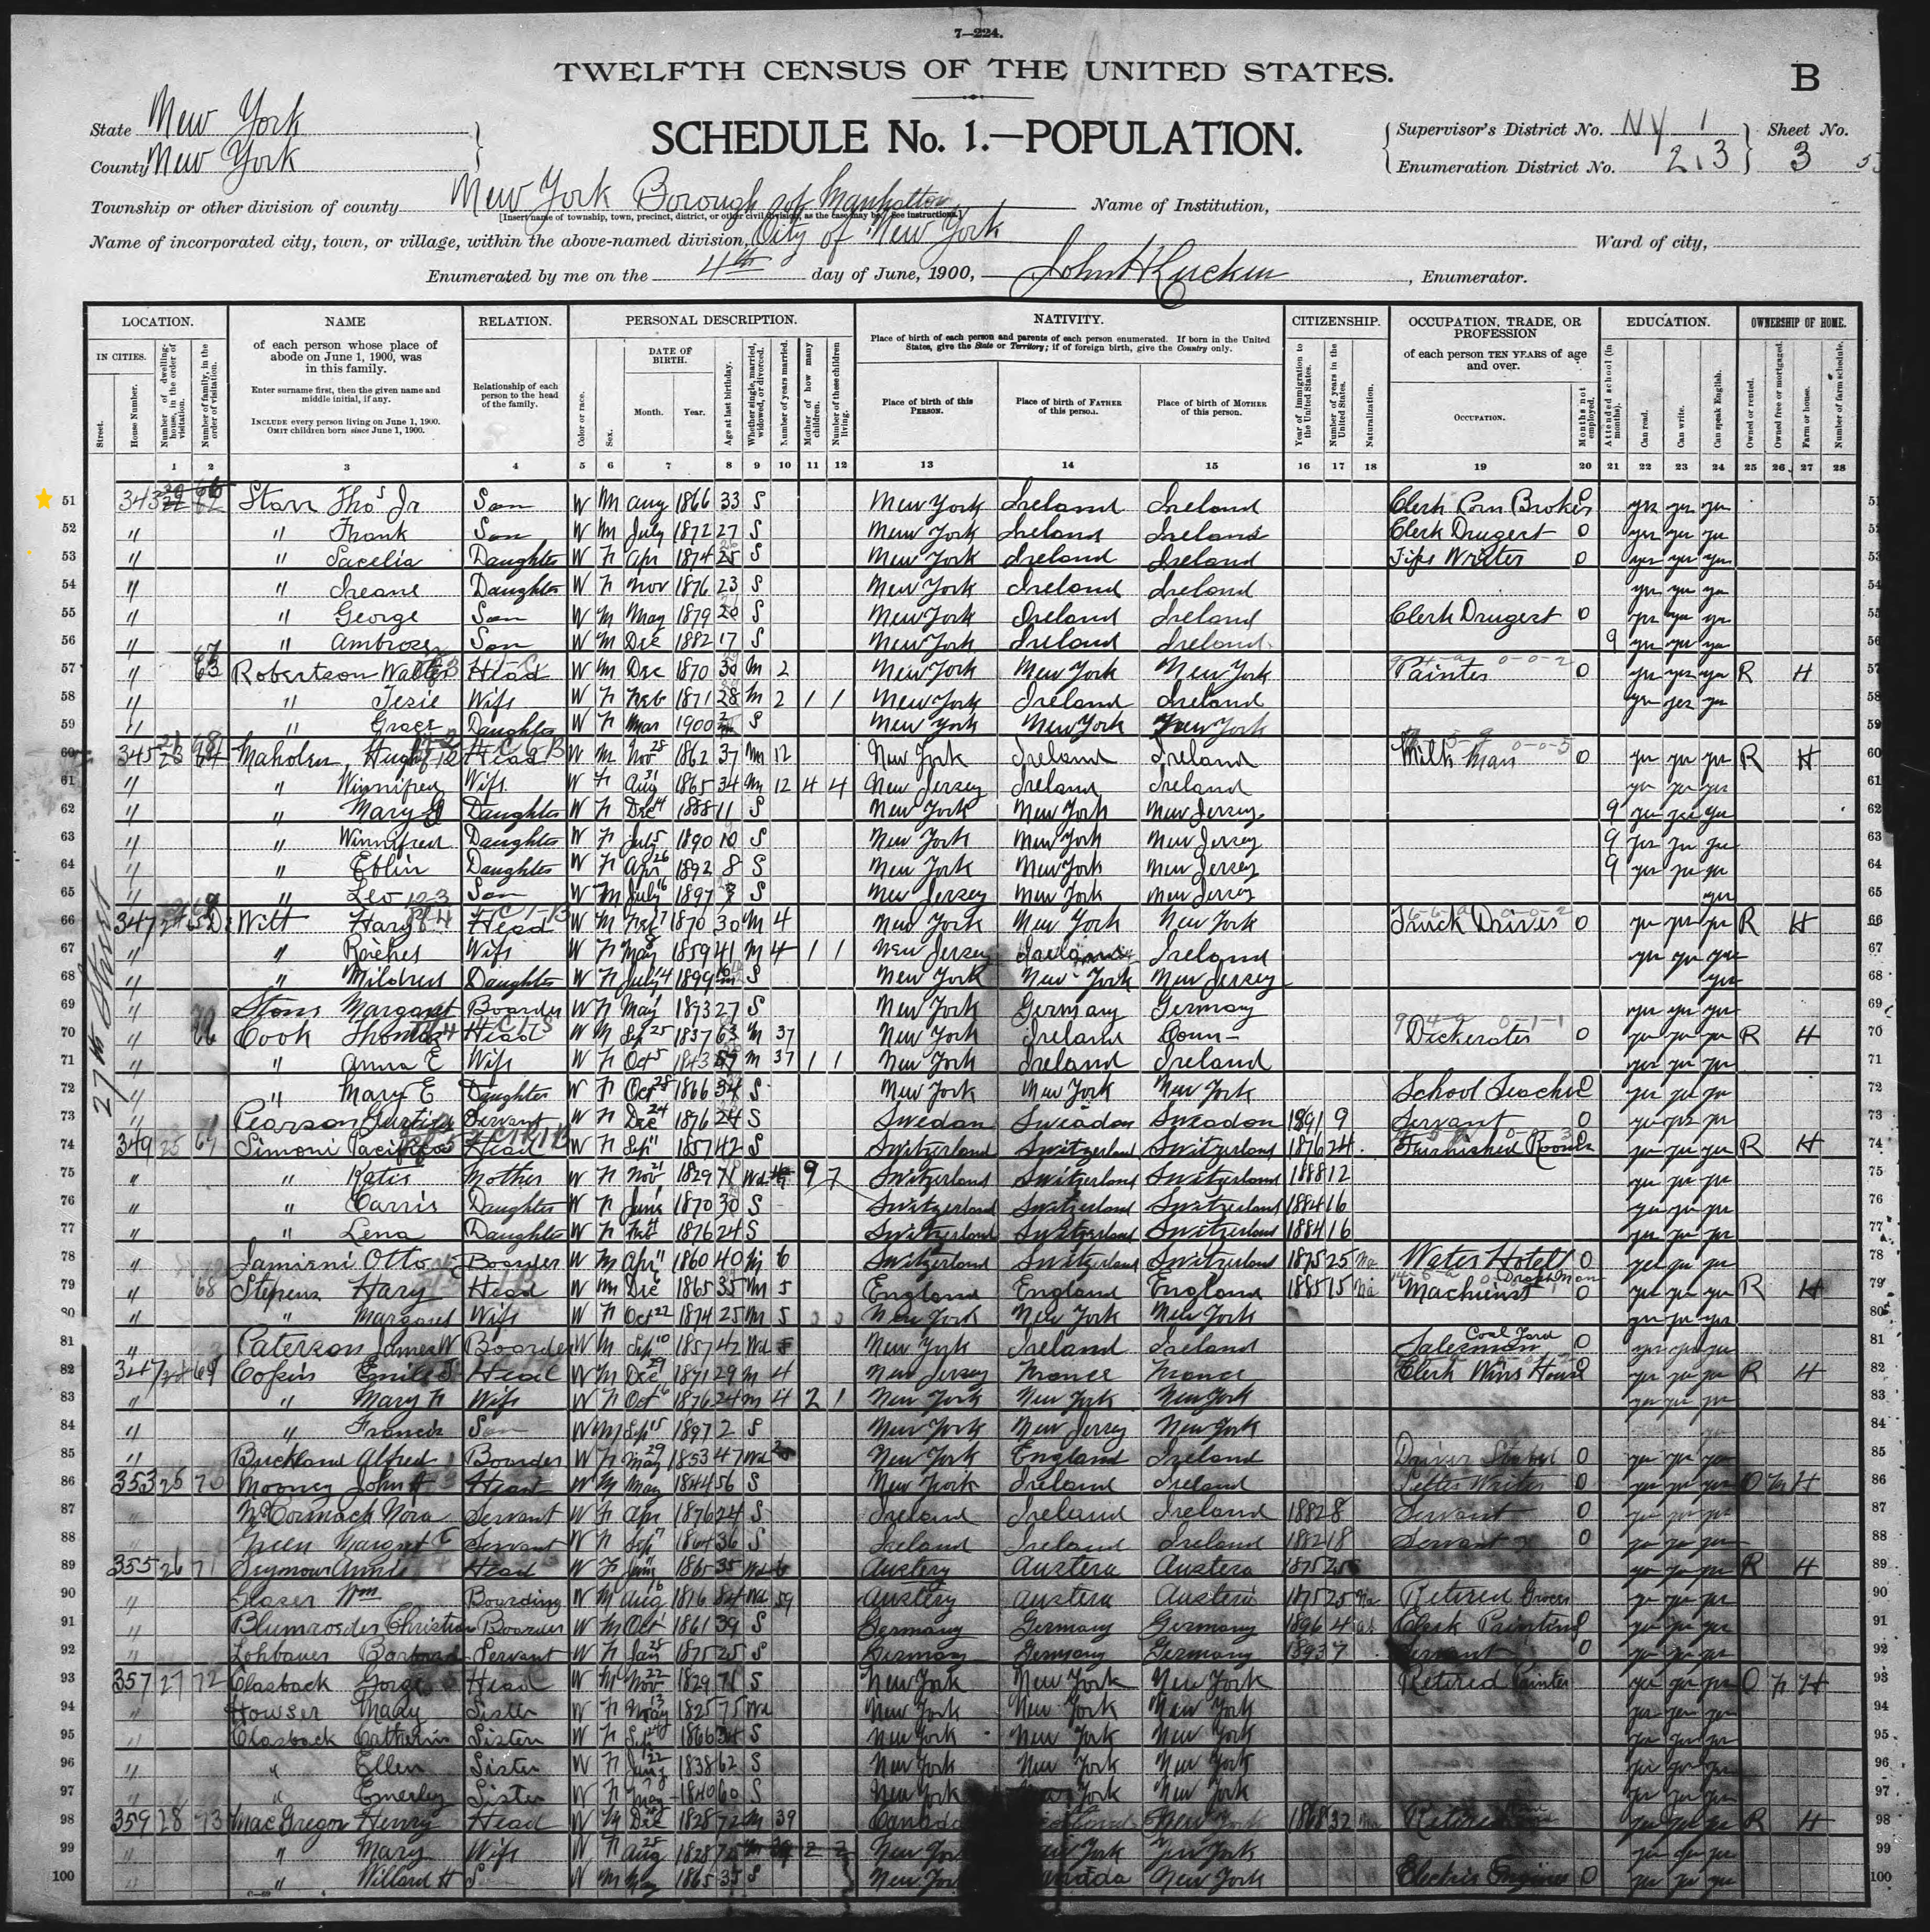 7—224.
TWELFTH CENSUS OF THE UNITED STATES.
B
State New York
SCHEDULE No. 1.—POPULATION.
Supervisor's District No. NY 1 Sheet No.
County New York
Enumeration District No. 213 3
Township or other division of county New York Borough of Manhattan Name of Institution,
[Insert name of township, town, precinct, district, or other civil division, as the case may be. See instructions.]
Name of incorporated city, town, or village, within the above-named division, City of New York Ward of city,
Enumerated by me on the 4th day of June, 1900, John H , Enumerator.
LOCATION. NAME RELATION. PERSONAL DESCRIPTION. NATIVITY. CITIZENSHIP. OCCUPATION, TRADE, OR PROFESSION EDUCATION. OWNERSHIP OF HOME.
IN CITIES.
Street.
House Number.
Number of dwelling-house, in the order of visitation.
Number of family, in the order of visitation.
of each person whose place of abode on June 1, 1900, was in this family.
Enter surname first, then the given name and middle initial, if any.
INCLUDE every person living on June 1, 1900.
OMIT children born since June 1, 1900.
Relationship of each person to the head of the family.
Color or race.
Sex.
DATE OF BIRTH.
Month. Year.
Age at last birthday.
Whether single, married, widowed, or divorced.
Number of years married.
Mother of how many children.
Number of these children living.
Place of birth of each person and parents of each person enumerated. If born in the United States, give the State or Territory; if of foreign birth, give the Country only.
Place of birth of this PERSON.
Place of birth of FATHER of this person.
Place of birth of MOTHER of this person.
Year of immigration to the United States.
Number of years in the United States.
Naturalization.
of each person TEN YEARS of age and over.
OCCUPATION.
Months not employed.
Attended school (in months).
Can read.
Can write.
Can speak English.
Owned or rented.
Owned free or mortgaged.
Farm or house.
Number of farm schedule.
1 2 3 4 5 6 7 8 9 10 11 12 13 14 15 16 17 18 19 20 21 22 23 24 25 26 27 28
27th Street
51 343 Starr Thos Jr Son W M Aug 1866 33 S New York Ireland Ireland Clerk Broker yes yes yes 51
52 " " Frank Son W M July 1872 27 S New York Ireland Ireland Clerk Drugest 0 yes yes yes 52
53 " " Daughter W F Apr 1874 25 S New York Ireland Ireland Writer 0 yes yes yes 53
54 " " Daughter W F Nov 1876 23 S New York Ireland Ireland yes yes yes 54
55 " " George Son W M May 1879 20 S New York Ireland Ireland Clerk Drugest 0 yes yes yes 55
56 " " Ambrose Son W M Dec 1882 17 S New York Ireland Ireland 9 yes yes yes 56
57 " 63 Robertson Walter Head W M Dec 1870 30 M 2 New York New York New York Painter 0 yes yes yes R H 57
58 " " Wife W F Feb 1871 28 M 2 1 1 New York Ireland Ireland yes yes yes 58
59 " " Grace Daughter W F Mar 1900 S New York New York New York 59
60 345 23 64 Hugh Head W M Nov 28 1862 37 M 12 New York Ireland Ireland Milk Man 0 yes yes yes R H 60
61 " " Winnifred Wife W F Aug 31 1865 34 M 12 4 4 New Jersey Ireland Ireland yes yes yes 61
62 " " Mary Daughter W F Dec 4 1888 11 S New York New York New Jersey 9 yes yes yes 62
63 " " Winnifred Daughter W F July 5 1890 10 S New York New York New Jersey 9 yes yes yes 63
64 " " Daughter W F Apr 26 1892 8 S New York New York New Jersey 9 yes yes yes 64
65 " " Leo Son W M July 16 1897 S New Jersey New York New Jersey yes 65
66 347 24 65 De Witt Hary Head W M Feb 7 1870 30 M 4 New York New York New York Truck Driver 0 yes yes yes R H 66
67 " " Rachel Wife W F May 8 1859 41 M 4 1 1 New Jersey Ireland Ireland yes yes yes 67
68 " " Mildred Daughter W F July 14 1899 S New York New York New Jersey yes 68
69 " Margaret Boarder W F May 1 1873 27 S New York Germany Germany yes yes yes 69
70 " 66 Cook Thomas Head W M Sep 25 1837 63 M 37 New York Ireland Conn 0 yes yes yes R H 70
71 " " Anna E Wife W F Oct 5 1843 M 37 1 1 New York Ireland Ireland yes yes yes 71
72 " " Mary E Daughter W F Oct 28 1866 34 S New York New York New York School Teacher yes yes yes 72
73 " Pearson Servant W F Dec 24 1876 24 S Sweden Sweadon Sweadon 1891 9 Servant 0 yes yes yes 73
74 349 25 67 Simoni Head W F Sep 11 1857 42 S Switzerland Switzerland Switzerland 1876 24 Furnished Rooms yes yes yes R H 74
75 " " Katie Mother W F Nov 21 1829 71 Wd 9 7 Switzerland Switzerland Switzerland 1888 12 yes yes yes 75
76 " " Carrie Daughter W F June 1 1870 30 S Switzerland Switzerland Switzerland 1884 16 yes yes yes 76
77 " " Lena Daughter W F Feb 1876 24 S Switzerland Switzerland Switzerland 1884 16 yes yes yes 77
78 " Otto Boarder W M Apr 11 1860 40 M 6 Switzerland Switzerland Switzerland 1875 25 Na Water Hotell 0 yes yes yes 78
79 " 68 Stepens Hary Head W M Dec 6 1865 35 M 5 England England England 1885 15 Na Machienist 0 yes yes yes R H 79
80 " " Margaret Wife W F Oct 22 1874 25 M 5 0 0 New York New York New York yes yes yes 80
81 " Paterson James W Boarder W M Sep 10 1857 42 Wd New York Ireland Ireland Salesman Coal Yard 0 yes yes yes 81
82 347 69 Emile Head W M Dec 29 1871 29 M 4 New Jersey France France Clerk Wine House yes yes yes R H 82
83 " " Mary F Wife W F Oct 6 1876 24 M 4 2 1 New York New York New York yes yes yes 83
84 " " Francis Son W M Sep 15 1897 2 S New York New Jersey New York 84
85 " Buckland Alfred Boarder W F May 29 1853 47 Wd New York England Ireland Driver 0 yes yes yes 85
86 353 25 70 Mooney John H Head W M May 1844 56 S New York Ireland Ireland Writer 0 yes yes yes O H 86
87 " McCormack Nora Servant W F Apr 1876 24 S Ireland Ireland Ireland 1882 8 Servant 0 yes yes yes 87
88 " Green Margret Servant W F Sep 1864 36 S Ireland Ireland Ireland 1882 18 Servant 0 yes yes yes 88
89 355 26 71 Seymour Annie Head W F 1865 35 Wd 6 Austery Austera Austera 1875 25 yes yes yes R H 89
90 " Glaser Wm Boarding W M Aug 16 1816 84 Wd 59 Austery Austera Austera 1875 25 Na Retired Grocer yes yes yes 90
91 " Blumroeder Christian Boarder W M Oct 1 1861 39 S Germany Germany Germany 1896 4 Clerk Painting yes yes yes 91
92 " Lohbauer Barbara Servant W F Jan 28 1875 25 S Germany Germany Germany 1893 7 Servant 0 yes yes yes 92
93 357 27 72 Clasback George Head W M Nov 22 1829 71 S New York New York New York Retired Painter yes yes yes O F H 93
94 " Howser Mary Sister W F May 13 1825 75 Wd New York New York New York yes yes yes 94
95 " Clasback Catherine Sister W F Sep 24 1866 34 S New York New York New York yes yes yes 95
96 " " Ellen Sister W F 22 1838 62 S New York New York New York yes yes yes 96
97 " " Emerley Sister W F May 1840 60 S New York York New York yes yes yes 97
98 359 28 73 MacGregor Henry Head W M Dec 1828 72 M 39 Canada New York 1868 32 Na Retired yes yes yes R H 98
99 " " Mary Wife W F Aug 28 1828 M 39 2 2 New York York New York yes yes yes 99
100 " " Willard H S W M May 1865 35 S New York New York Electric Engineer 0 yes yes yes 100